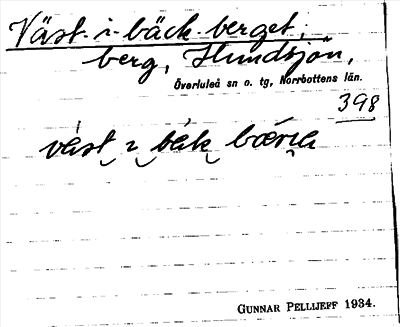 Väst-i-bäck-berget,
berg, Hundsjön,
Överluleå sn o. tg, Norrbottens län.
398
väst i bäk
GUNNAR PELLIJEFF 1934.